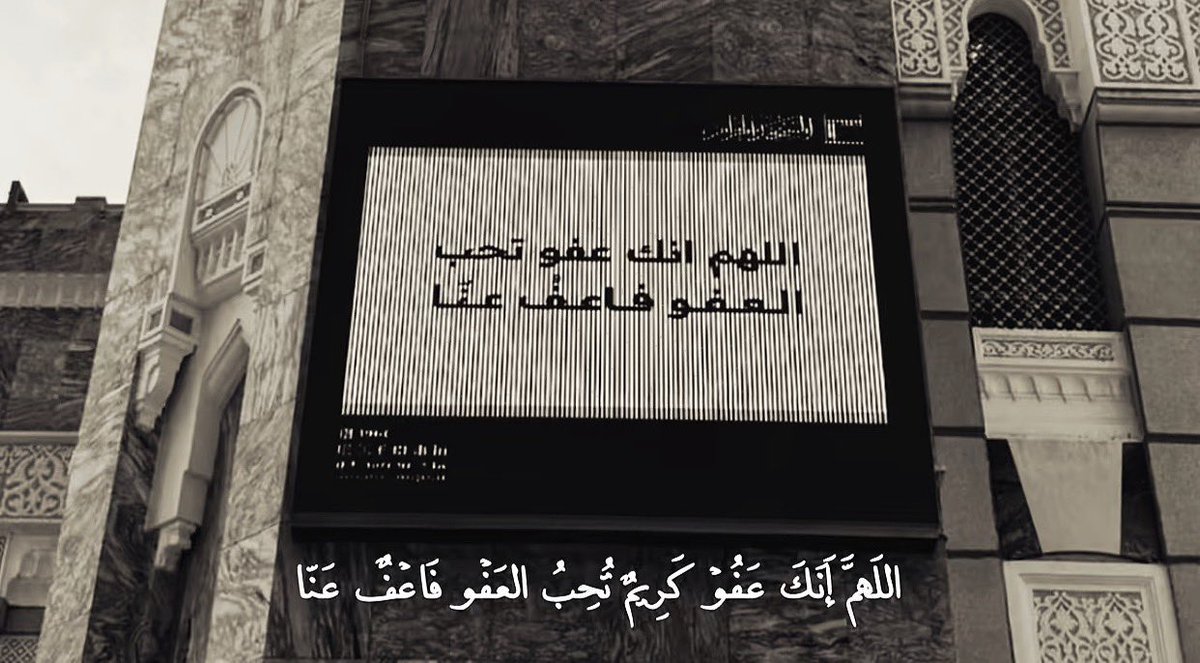 اللهم انك عفو تحب
العفو فاعفُ عنّا
اللَهمَّ إَنَكَ عَفُوْ كَرِيمٌ تُحِبُ العَفْو فَاعْفٌ عَنّا